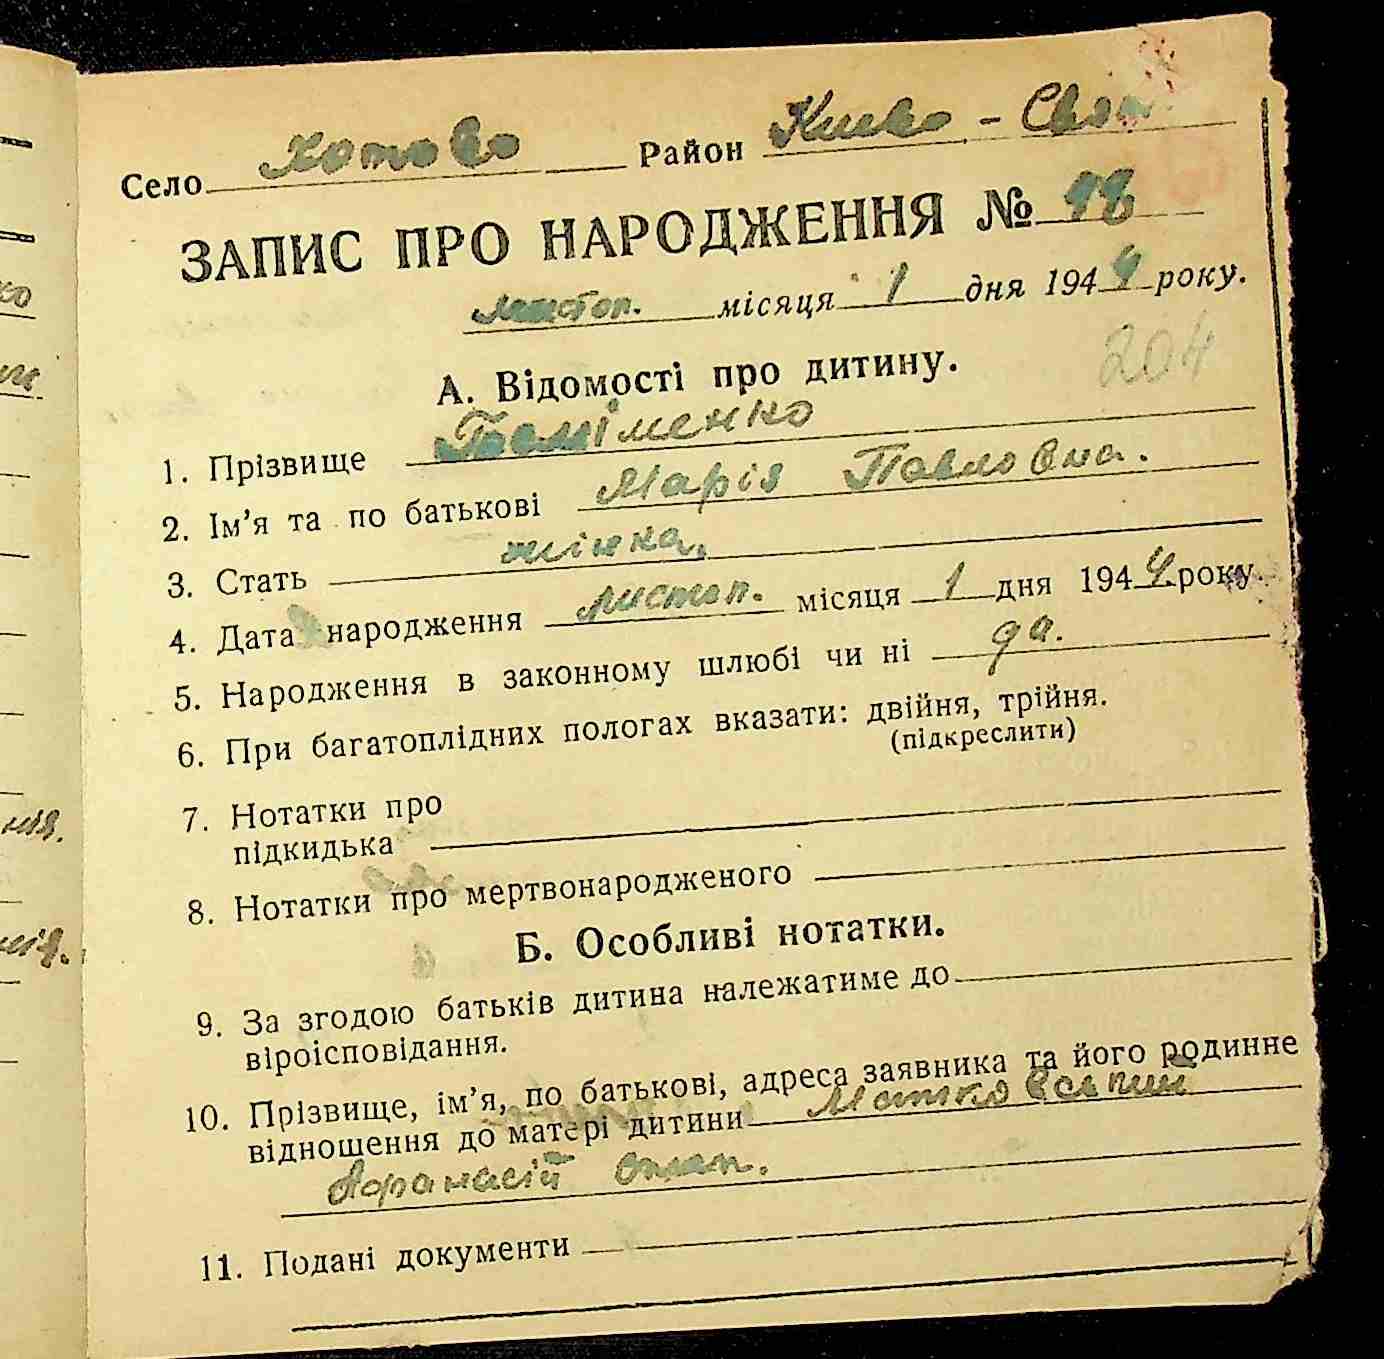 Село Хотово Район Києво - Свят
ЗАПИС ПРО НАРОДЖЕННЯ № 48
листоп. місяця 1 дня 1944 року.
204
А. Відомості про дитину.
1. Прізвище
2. Ім'я та по батькові Марія Павловна.
3. Стать жінка.
4. Дата народження листоп. місяця 1 дня 1944 року.
5. Народження в законному шлюбі чи ні да.
6. При багатоплідних пологах вказати: двійня, трійня.
(підкреслити)
7. Нотатки про
підкидька
8. Нотатки про мертвонародженого
Б. Особливі нотатки.
9. За згодою батьків дитина належатиме до
віроісповідання.
10. Прізвище, ім'я, по батькові, адреса заявника та його родинне
відношення до матері дитини
Афанасій
11. Подані документи